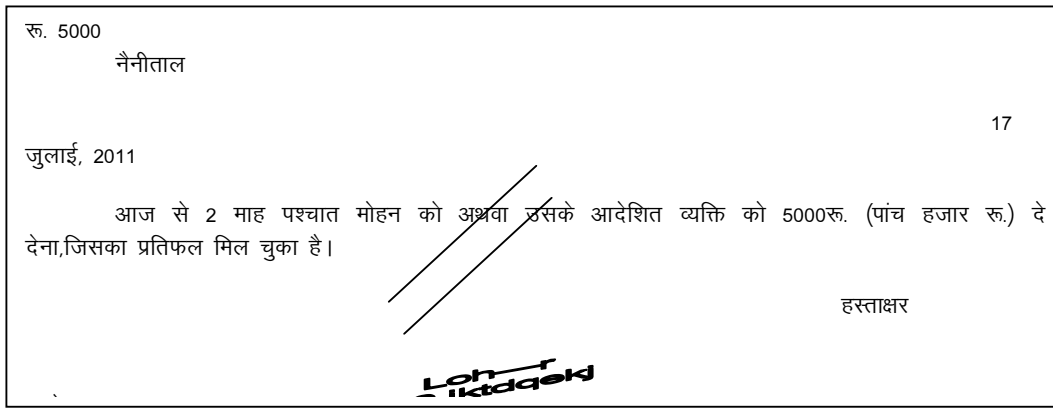 रू. 5000
नैनीताल
17
जुलाई, 2011
आज से 2 माह पश्चात मोहन को अथवा उसके आदेशित व्यक्ति को 5000रू. (पांच हजार रू.) दे
देना,जिसका प्रतिफल मिल चुका है।
हस्ताक्षर